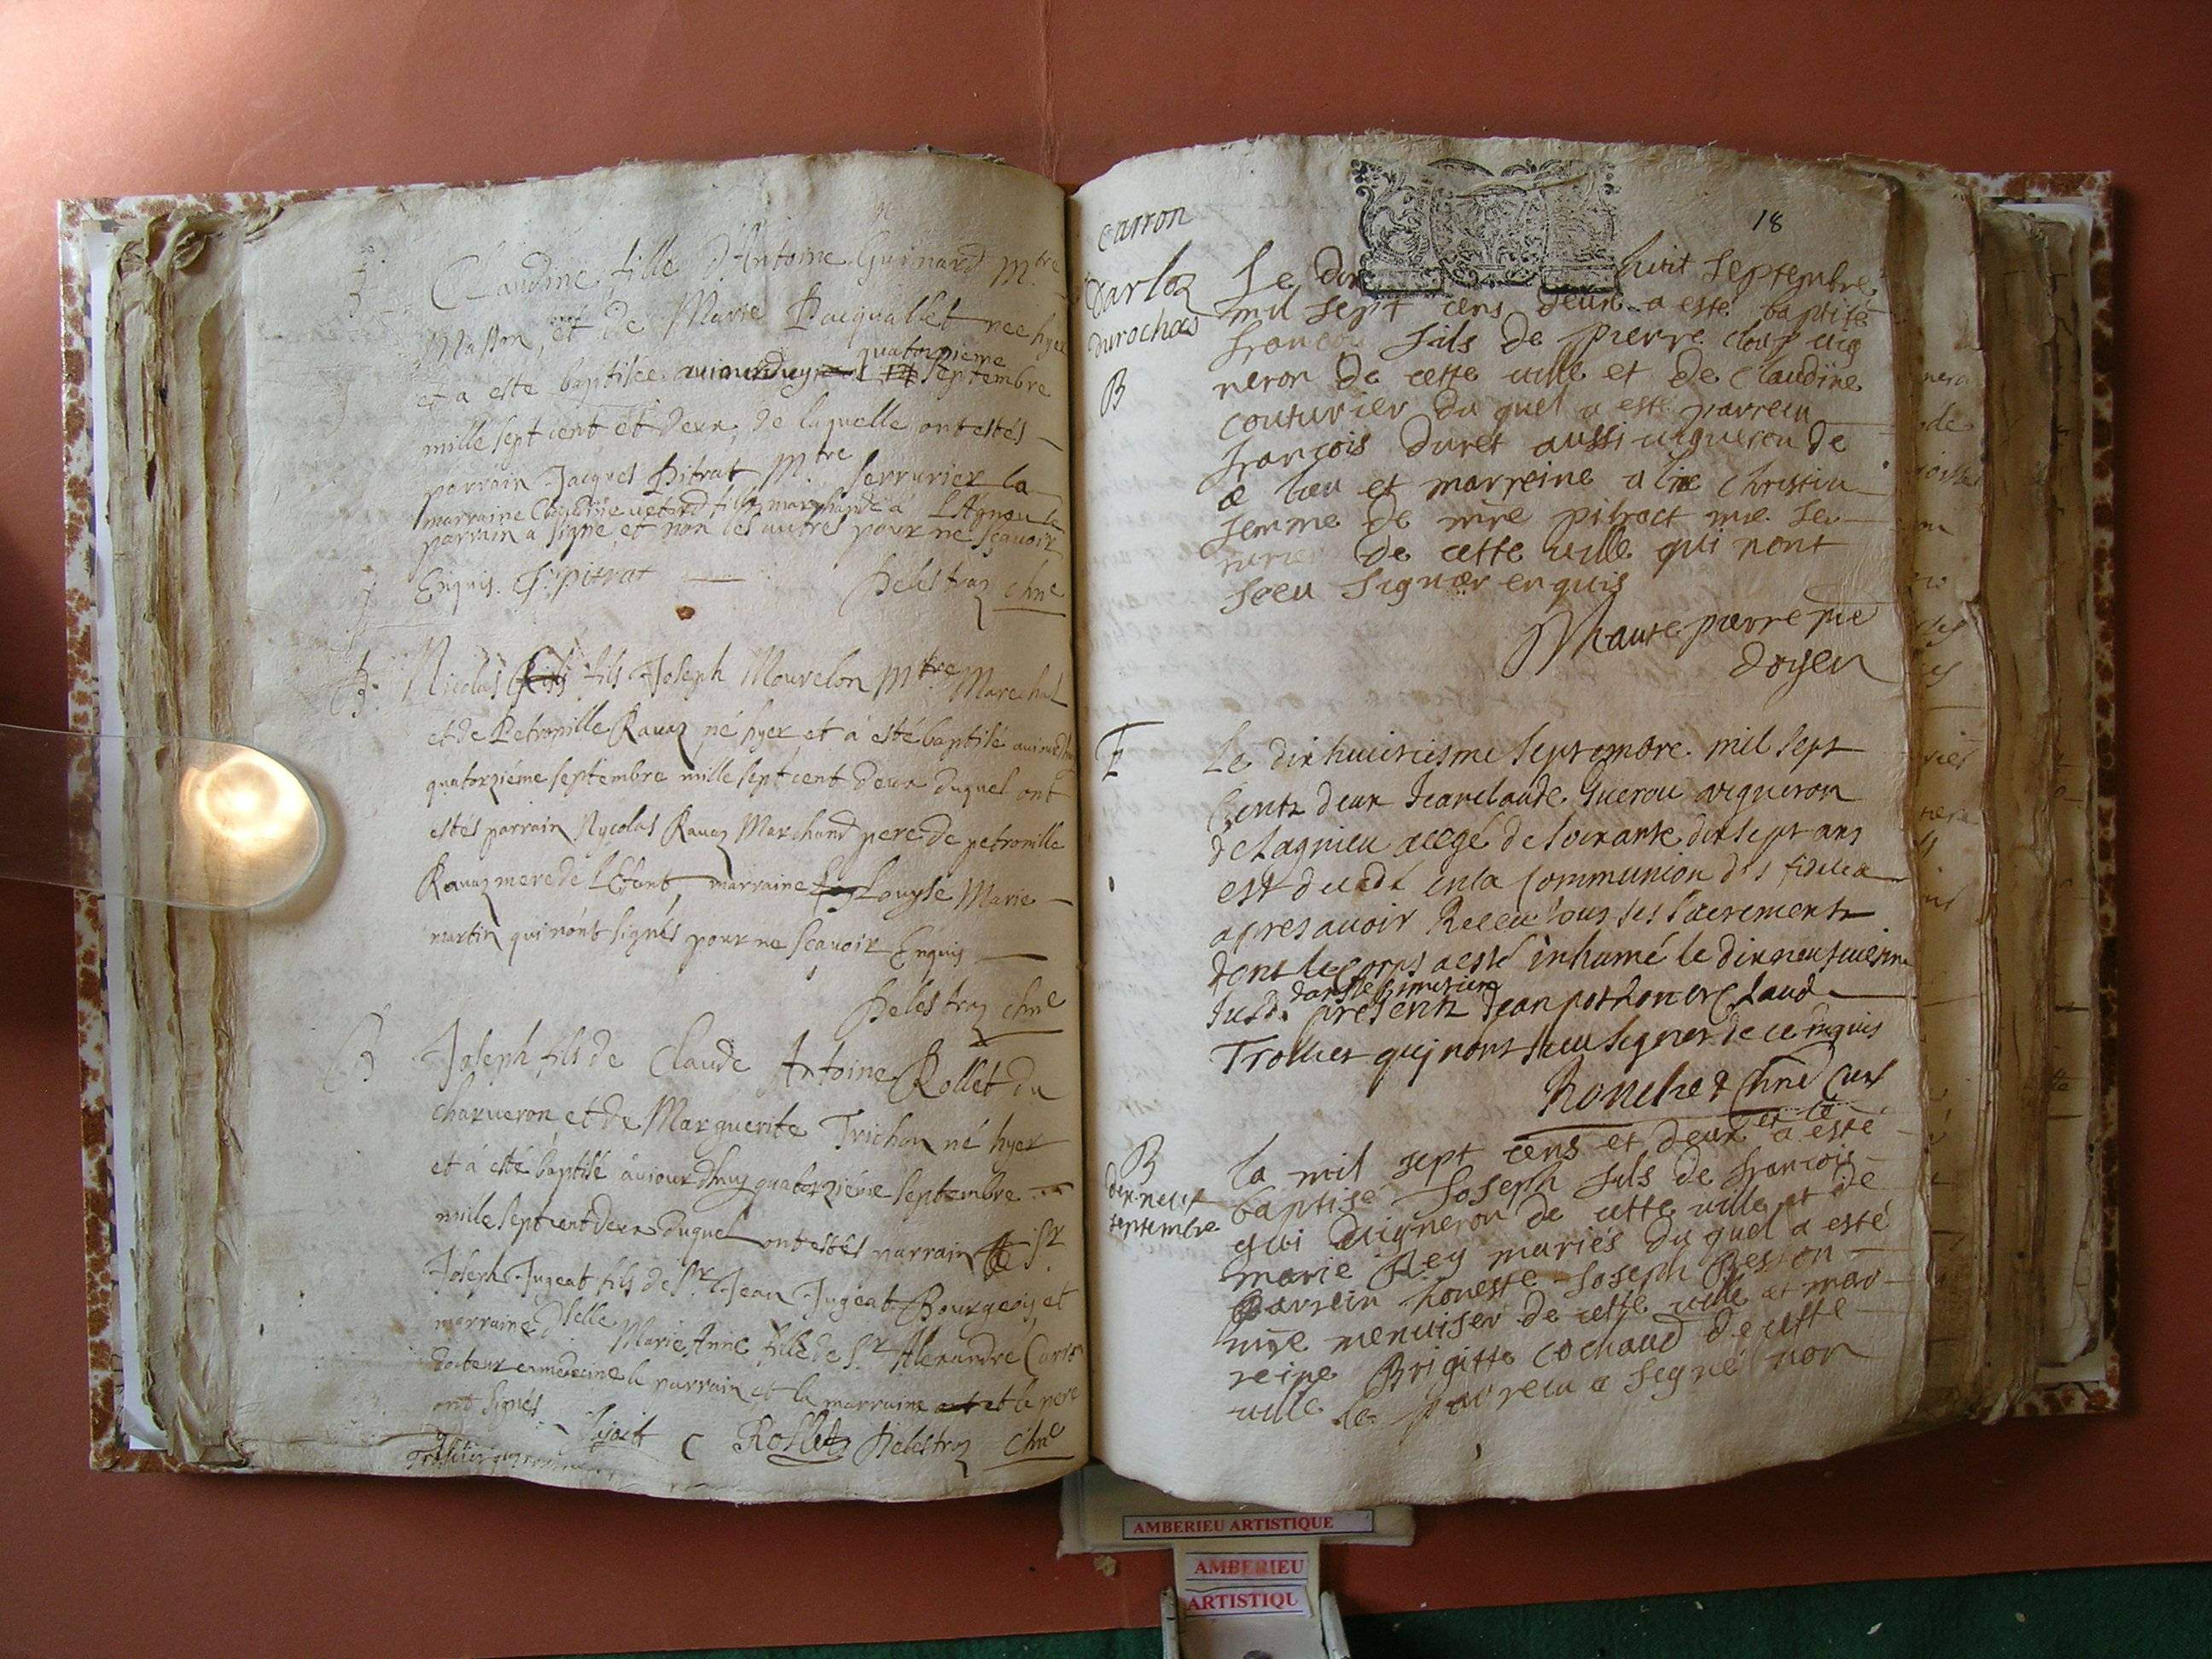 B
Claudine, fille d'Antoine Guinard Mtre
Masson, et de Marie Pacquallet nee hyer
et a esté baptisée aujourduy quatorzieme septembre
mille sept cent et deux, de laquelle ont estés
parrain Jacques Pitrat Mtre serrurier la
marraine Claudine fille marchande à Lagnieu le
parrain a signé et non les autres pour ne sçavoir
Enquis. J. pitrat Delestraz chne
B
Nicolas fils Joseph Mourelon Mtre Marechal
et de Petronille Ravaz né hyer et à esté baptisé
quatorziéme septembre mille sept cent deux duquel ont
estés parrain Nycolas Ravaz Marchand pere de petronille
Ravaz mere de L'Efant, marraine Louyse Marie
martin qui n'ont signés pour ne scavoir Enquis
Delestraz chne
B
Joseph fils de Claude Antoine Rollet du
charveron et de Marguerite Trichon né hyer
et à esté baptisé aujourdhuy quatorziéme septembre
mille sept cent deux duquel ont estés parrain Sr
Joseph Jugeat fils de Sr Jean Jugeat Bourgeois et
marraine Dlle Marie Anne fille de Sr Alexandre
docteur en medecine le parrain et la marraine et le pere
ont signés
C Rollet Delestraz chne
carron
18
Le dix huit Septembre
mil sept cens deux a esté baptisé
francois fils de pierre vig
neron de cette ville et de Claudine
B
couturier du quel a esté parrein
françois duret aussi vigneron de
ce lieu et marreine christin
femme de mre pitract mre ser
rurier de cette ville qui nont
sceu signer enquis
haute pierre
doyen
E
Le dix huictiesme septembre mil sept
Centz deux Jean claude vigneron
de Lagnieu aegé de soixante dix sept ans
est decedé en la Communion des fideles
apres avoir Receu tous ses sacrements
dont le Corps a esté inhumé le dix neufviesme
dans le simetiere
presentz Jean pothon et Claud
Trollict quj nont sceu signer de ce enquis
chne Curé
et le
B
dix neuf
septembre
la mil sept cens et deux a esté
baptisé Joseph fils de francois
gui vigneron de cette ville et de
marie Rey mariés du quel a esté
parrein honeste Joseph Besson
mre menuiser de cette ville et mar
reine Brigitte cochaud de cette
ville le parrein a signé non
AMBERIEU ARTISTIQUE
AMBERIEU
ARTISTIQU